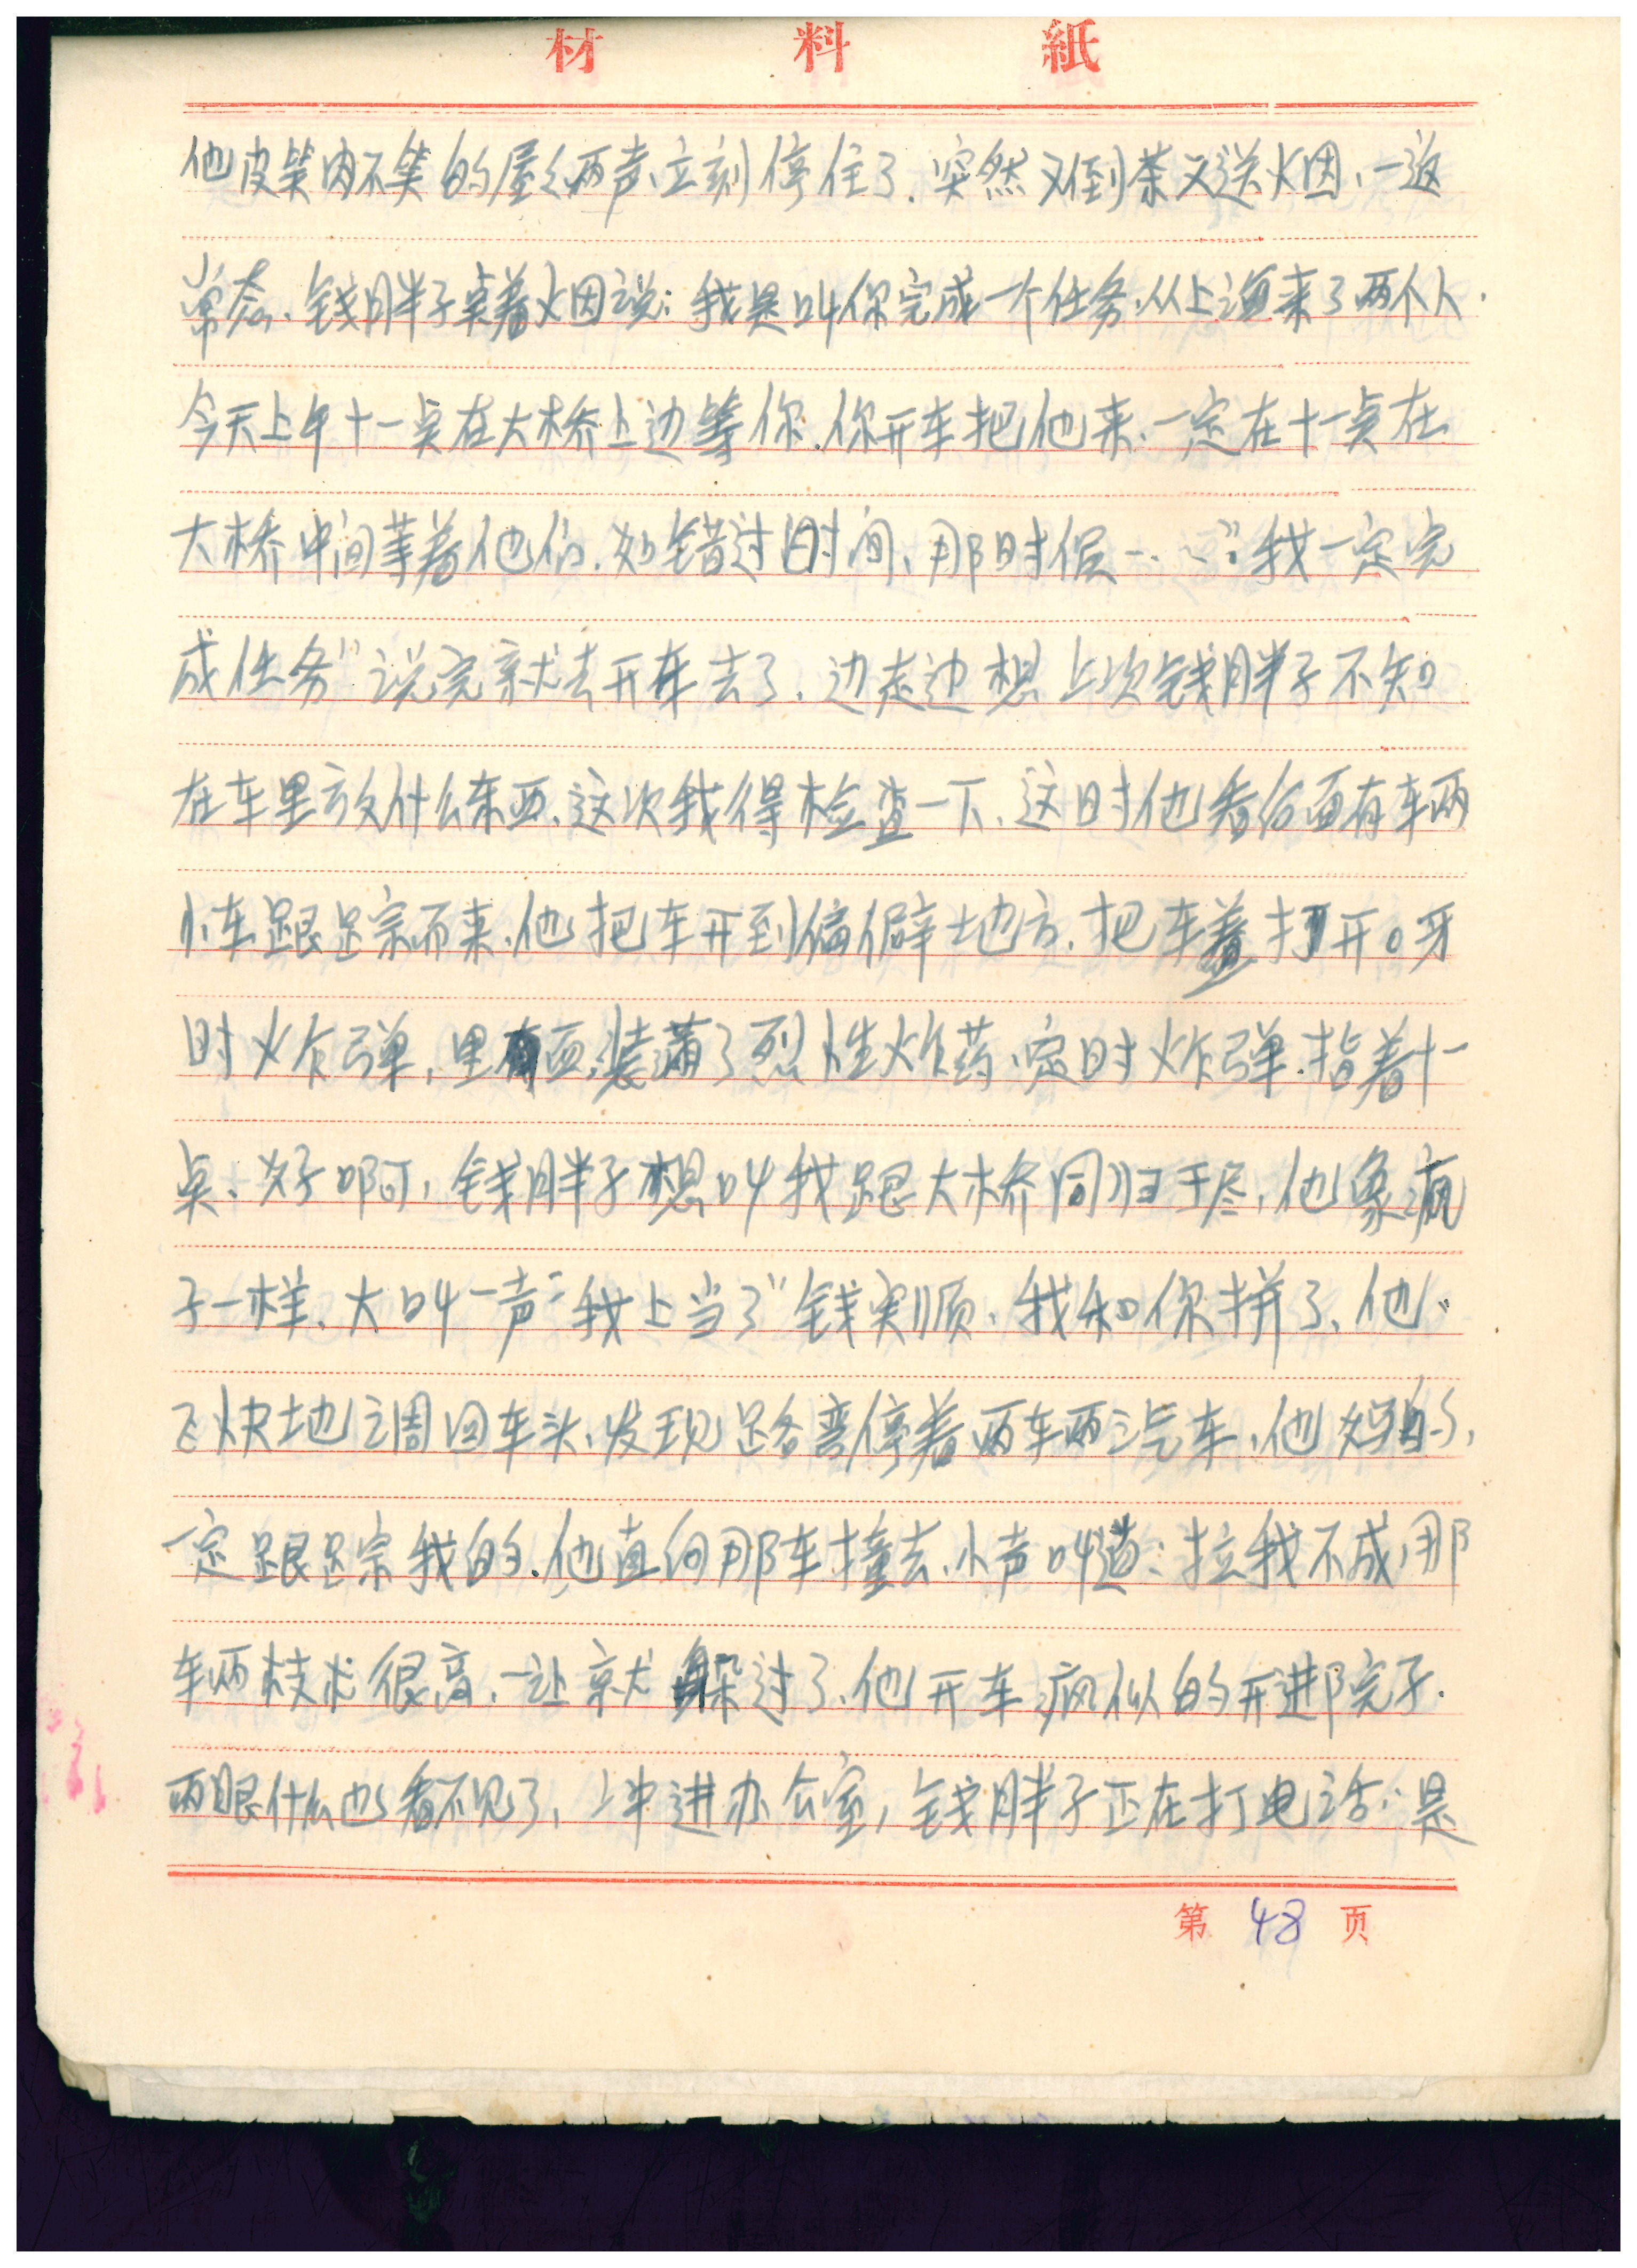 材料紙
他皮笑肉不笑的屋〻两声立刻停住了.突然又倒茶又送火因、一返
常态、钱胖子桌着火因说：我是叫你完成一个任务.从上海来了两个人.
今天上午十一点在大桥上边等你.你开车把他来、一定在十一点在
大桥中间等着他们.如错过时间、那时候……”我一定完
成任务”说完就去开车去了.边走边想上次钱胖子不知
在车里放什么东西、这次我得检查一下、这时他看后面有车两
小车跟踪而来、他把车开到偏僻地方.把车盖打开。牙
时炸弹，里面装满了烈性炸药、定时炸弹.指着十一
点、好啊，钱胖子想叫我跟大桥同归于尽，他象疯
子一样、大叫一声“我上当了”钱寅顺、我和你拼了、他
飞快地调回车头、发现路弯停着两车两汽车、他妈的，
一定跟踪我的.他直向那车撞去、小声叫道：拉我不成，那
车两枝术很高、一让就躲过了、他开车疯似的开进那院子.
两眼什么也看不见了，冲进办公室，钱胖子正在打电话：是
第 48 页